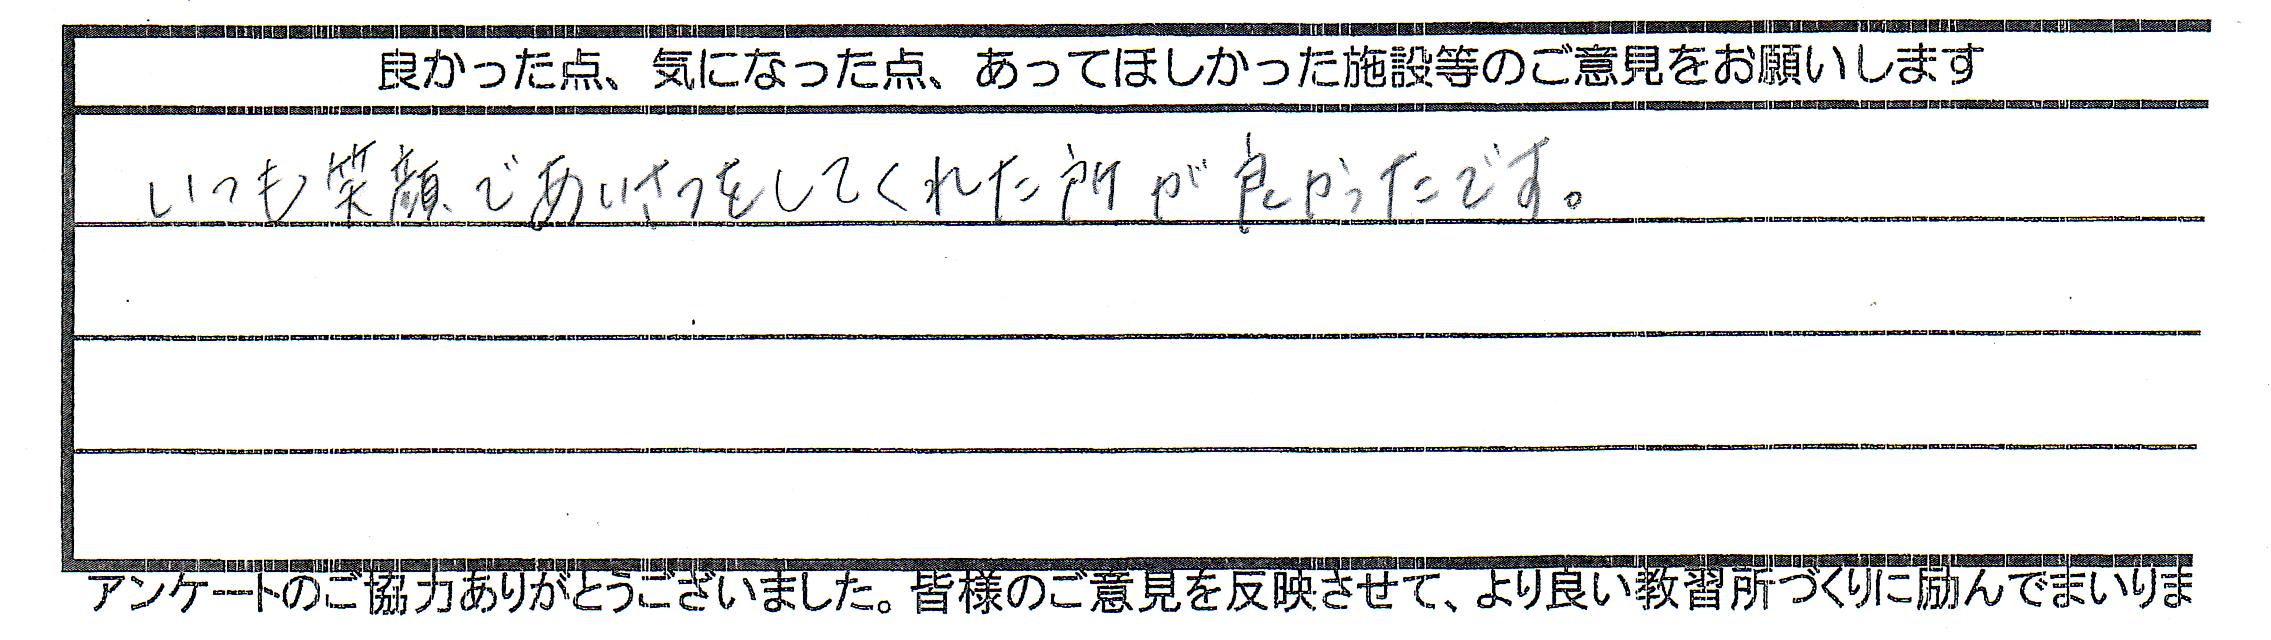 良かった点、気になった点、あってほしかった施設等のご意見をお願いします
いつも笑顔であいさつをしてくれた所が良かったです。
アンケートのご協力ありがとうございました。皆様のご意見を反映させて、より良い教習所づくりに励んでまいりま